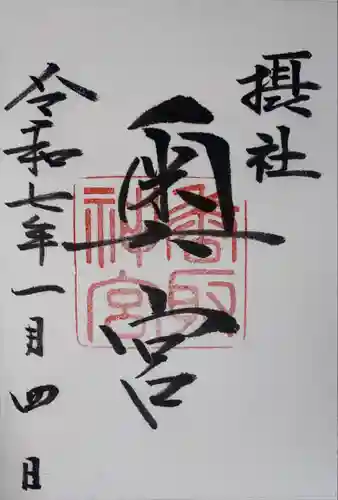 摂社
奥宮
香取神宮
令和七年一月四日